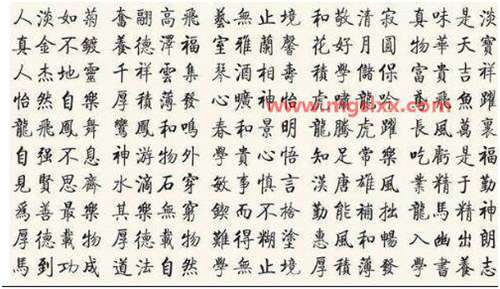 人淡如菊 奮翮高飛 藝無止境 和敬清寂 真味是淡
真金不鍍 養德澤福 室雅蘭馨 花好月圓 物華天寶
人杰地靈 千祥雲集 琴酒相 學儲 富貴吉祥
怡然自樂 厚積薄發 心曠神怡 虎嘯 飛魚躍
龍飛鳳舞 鸞鳳和鳴 春和景明 龍騰虎躍 長風萬裏
自强不息 神游物外 學貴心悟 知足常樂 吃虧是福
見賢思齊 水滴石穿 敏事慎言 漢唐雄風 業精于勤
爲善最樂 其樂無窮 鍥而不捨 勤能補拙 龍馬精神
厚德載物 厚德載物 難得糊塗 惠風和暢 入幽出朗
馬到功成 道法自然 學無止境 厚積薄發 學書養志
www.mgslxx.com